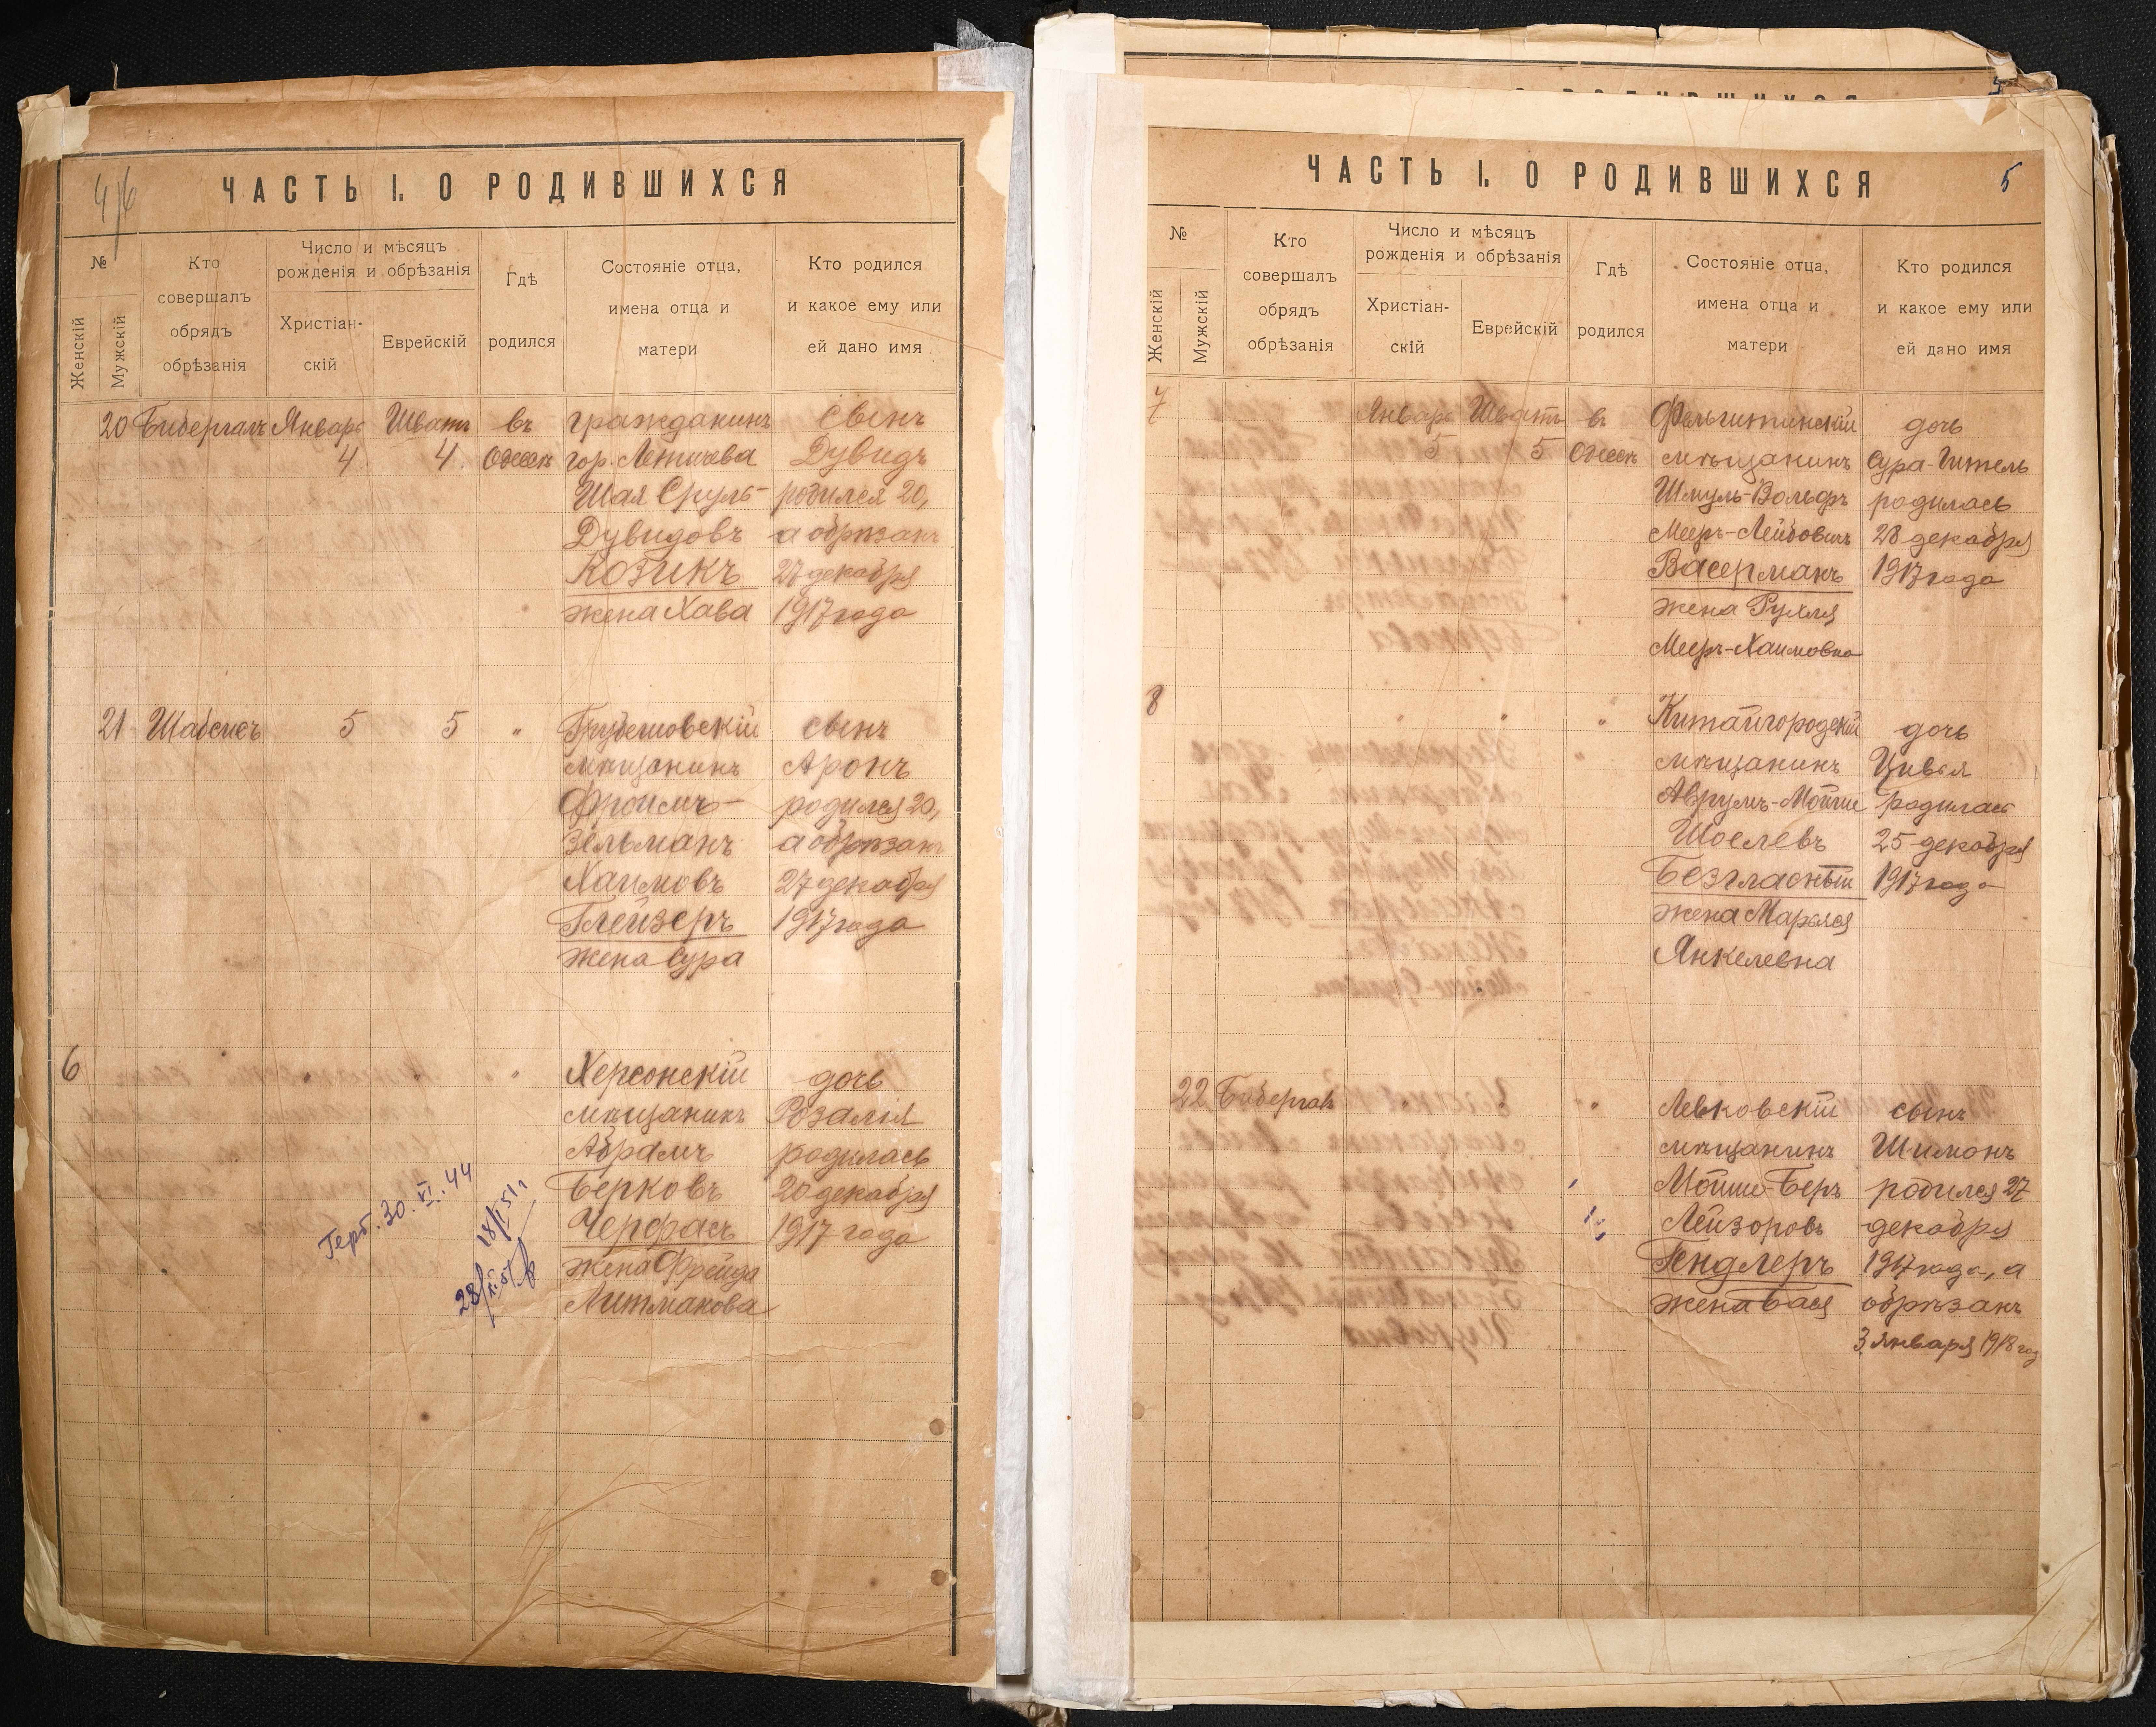 4/6
ЧАСТЬ I. О РОДИВШИХСЯ
№
Женскій
Мужскій
Кто
совершалъ
обрядъ
обрѣзанія
Число и мѣсяцъ
рожденія и обрѣзанія
Христіан-
скій
Еврейскій
Гдѣ
родился
Состояніе отца,
имена отца и
матери
Кто родился
и какое ему или
ей дано имя
20 Бибергалъ Январь Шватъ въ гражданинъ сынъ
4 4. Одессѣ гор. Летичева Дувидъ
Шая Сруль- родился 20,
Дувидовъ а обрѣзанъ
Козикъ 27 декабря
жена Хава 1917 года
21 Шабсисъ 5 5 " Грубешовскій сынъ
мѣщанинъ Аронъ
Фроимъ- родился 20,
Зельманъ а обрѣзанъ
Хаимовъ 27 декабря
Глейзеръ 1917 года
жена Сура
6 " " " Херсонскій дочь
мѣщанинъ Розалія
Абрамъ родилась
Берковъ 20 декабря
Черфасъ 1917 года
жена Фрейда
Литманова
Герб. 30. VI. 44
18/I 51 г
28/XI 57
ЧАСТЬ I. О РОДИВШИХСЯ
5
№
Женскій
Мужскій
Кто
совершалъ
обрядъ
обрѣзанія
Число и мѣсяцъ
рожденія и обрѣзанія
Христіан-
скій
Еврейскій
Гдѣ
родился
Состояніе отца,
имена отца и
матери
Кто родился
и какое ему или
ей дано имя
7 Январь Шватъ въ Фельштинскій дочь
5 5 Одессѣ мѣщанинъ Сура-Гитель
Шмуль-Вольфъ родилась
Мееръ-Лейбовичъ 28 декабря
Васерманъ 1917 года
жена Рухля
Мееръ-Хаимовна
8 " " " Китайгородскій дочь
" мѣщанинъ Цивья
Аврумъ-Мойше родилась
Шоелевъ 25 декабря
Безгласный 1917 года
жена Марьяся
Янкелевна
22 Бибергалъ " Левковскій сынъ
мѣщанинъ Шимонъ
Мойше-Беръ родился 27
Лейзоровъ декабря
Гендлеръ 1917 года, а
жена Бася обрѣзанъ
3 января 1918 год